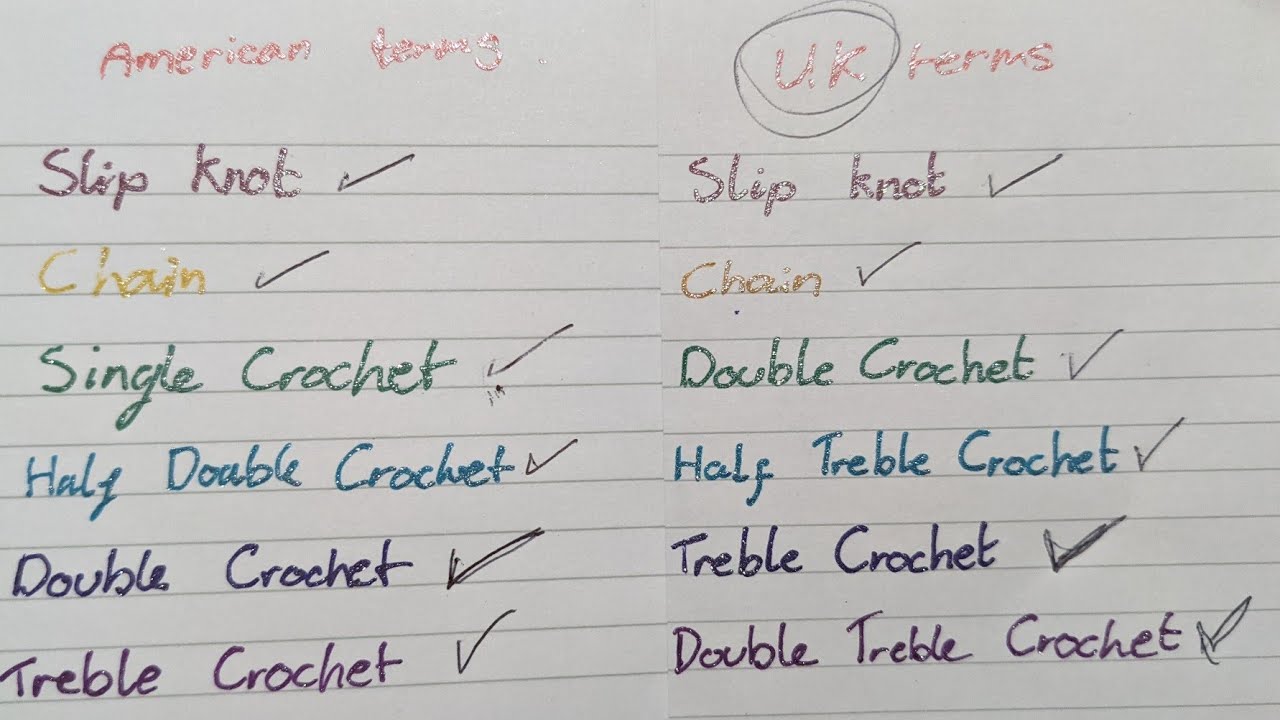 American terms.
Slip knot ✓
Chain ✓
Single Crochet ✓
Half Double Crochet ✓
Double Crochet ✓
Treble Crochet ✓
U.K terms
Slip knot ✓
Chain ✓
Double Crochet ✓
Half Treble Crochet ✓
Treble Crochet ✓
Double Treble Crochet ✓